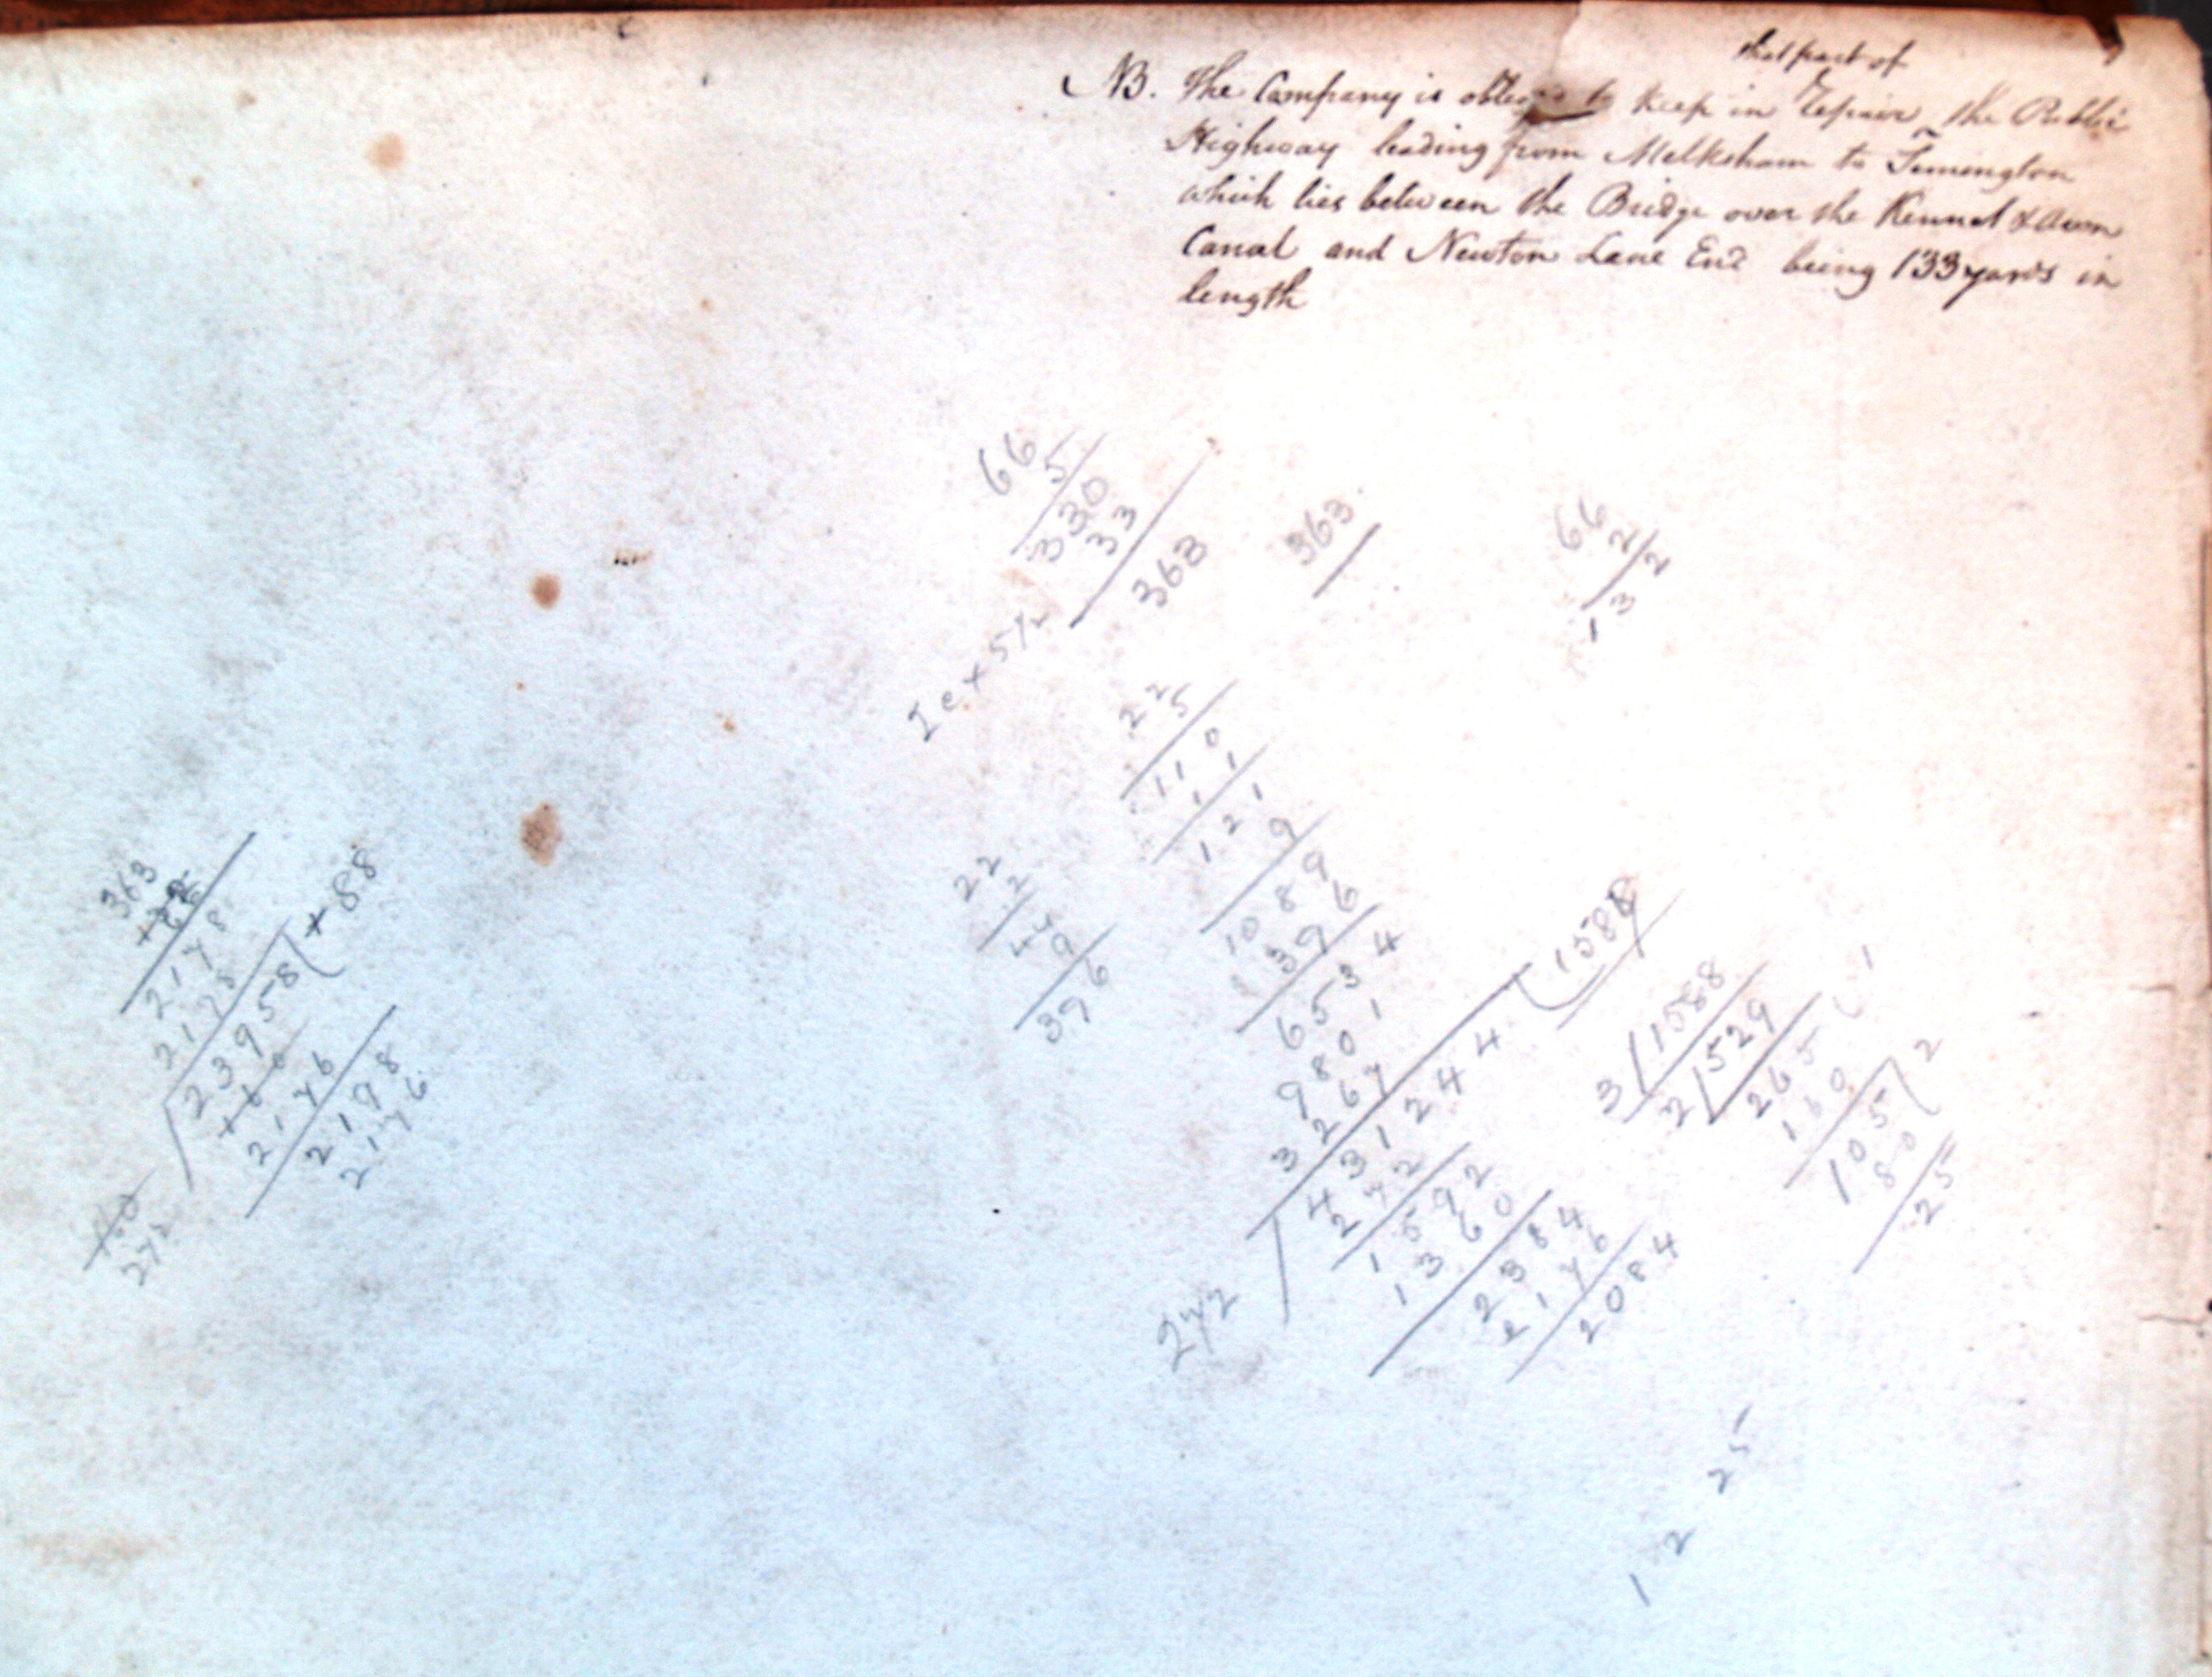 that part of
NB. The Company is obliged to keep in repair the Public
Highway leading from Melksham to Semington
which lies between the Bridge over the Kennet & Avon
Canal and Newton Lane End being 133 yards in
length
66
5
330
33
363
363
66
2/2
132
1 ex 5 1/2
22
5
110
11
121
9
1089
396
6534
9801
3267
431244 (1588
272
272
1592
1360
2384
2176
2084
22
2
44
9
396
3/1588
2/529
265 (1
160
105 / 2
80
25
363
66
2178
2178
23958 ( + 88
2176
2198
2176
272
1 2 25